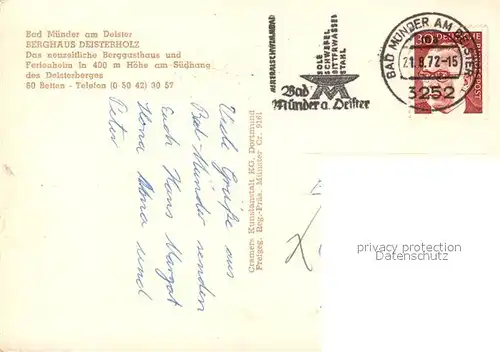 Bad Münder am Deister
BERGHAUS DEISTERHOLZ
Das neuzeitliche Berggasthaus und
Ferienheim in 400 m Höhe am Südhang
des Deisterberges
80 Betten - Telefon (0 50 42) 30 57
MINERALSCHWIMMBAD
SOLE
SCHWEFEL
BITTERWASSER
STAHL
Bad
Münder a. Deister
BAD MÜNDER AM DEISTER
.8.72-15
3252
30
DEUTSCHE BUNDESPOST
Viele Grüße aus
Bad-Münder senden
Euch Hans Margot
Ilona und
Peter
Cramers Kunstanstalt KG, Dortmund
Freigeg. Reg.-Präs. Münster Cr.
privacy protection
Datenschutz